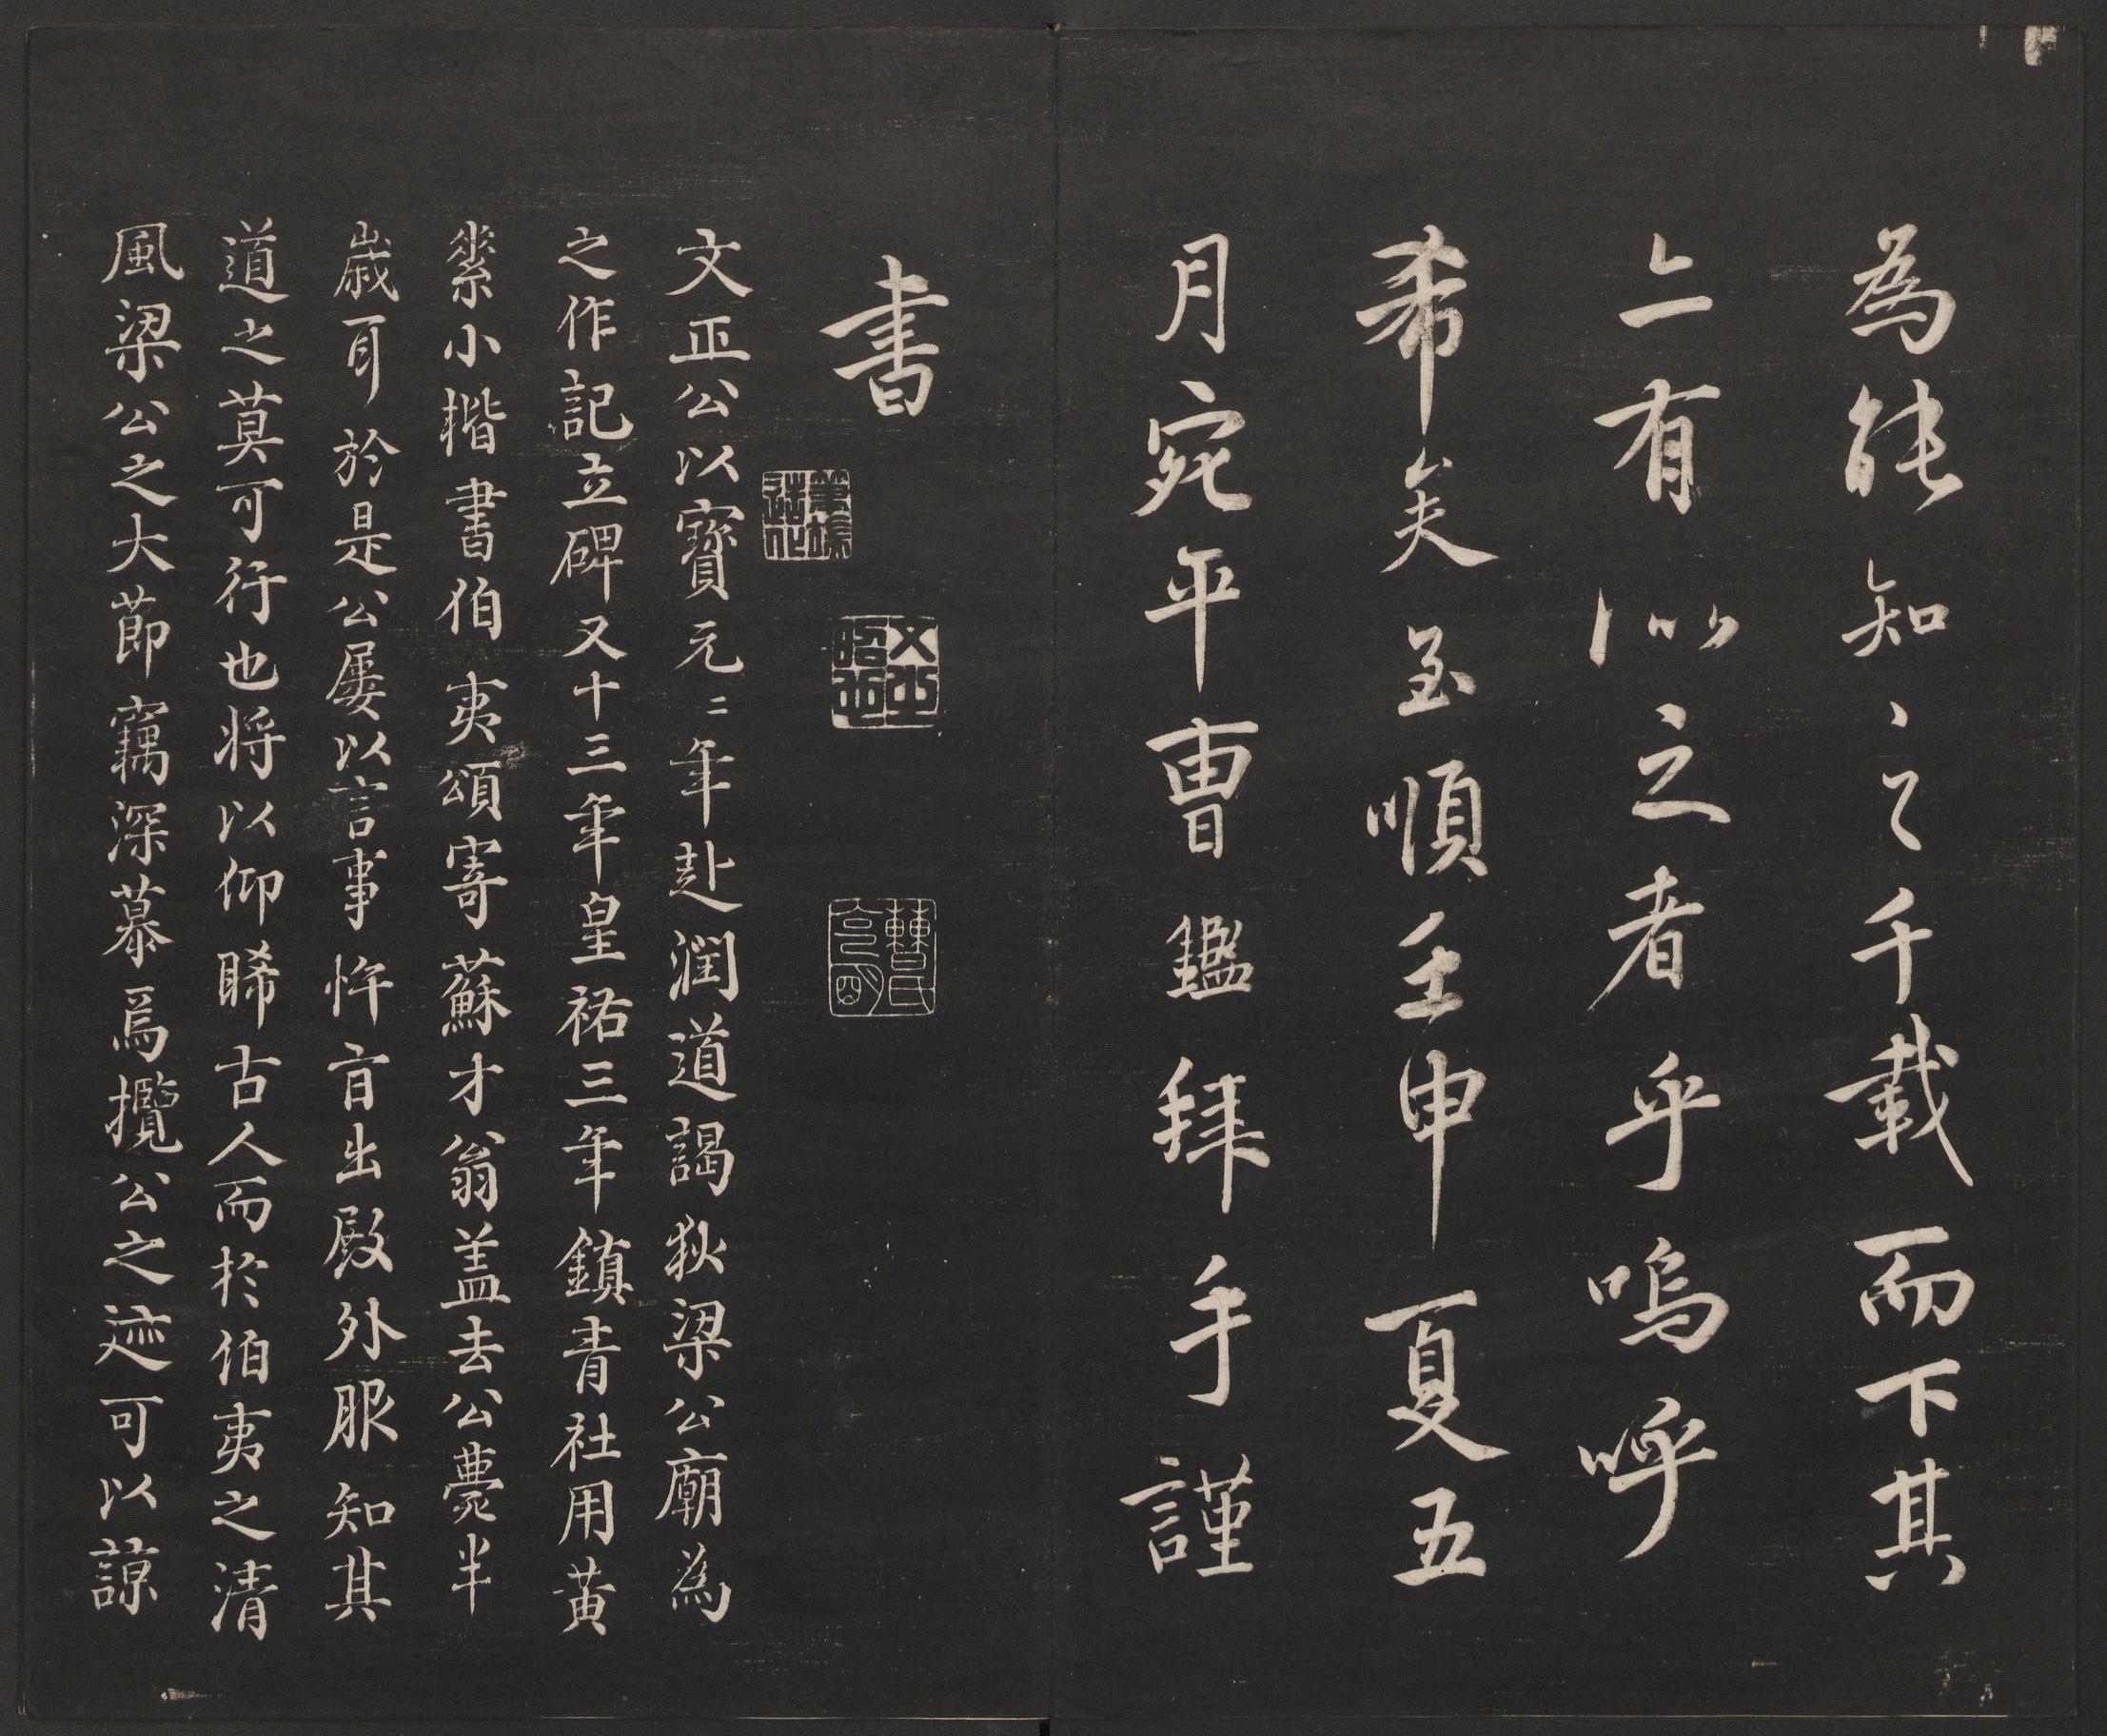 為能知之千載而下其
亠有以之者乎嗚呼
希矣至順壬申夏五
月宛平曹鑑拜手謹
書
文正公以寶元二年赴潤道謁狄梁公廟為
之作記立碑又十三年皇祐三年鎮青社用黃
素小楷書伯夷頌寄蘇才翁盖去公薨半
歲耳於是公屢以言事忤旨出殿外服知其
道之莫可行也将以仰睎古人而於伯夷之清
風梁公之大節竊深慕焉攬公之迹可以諒